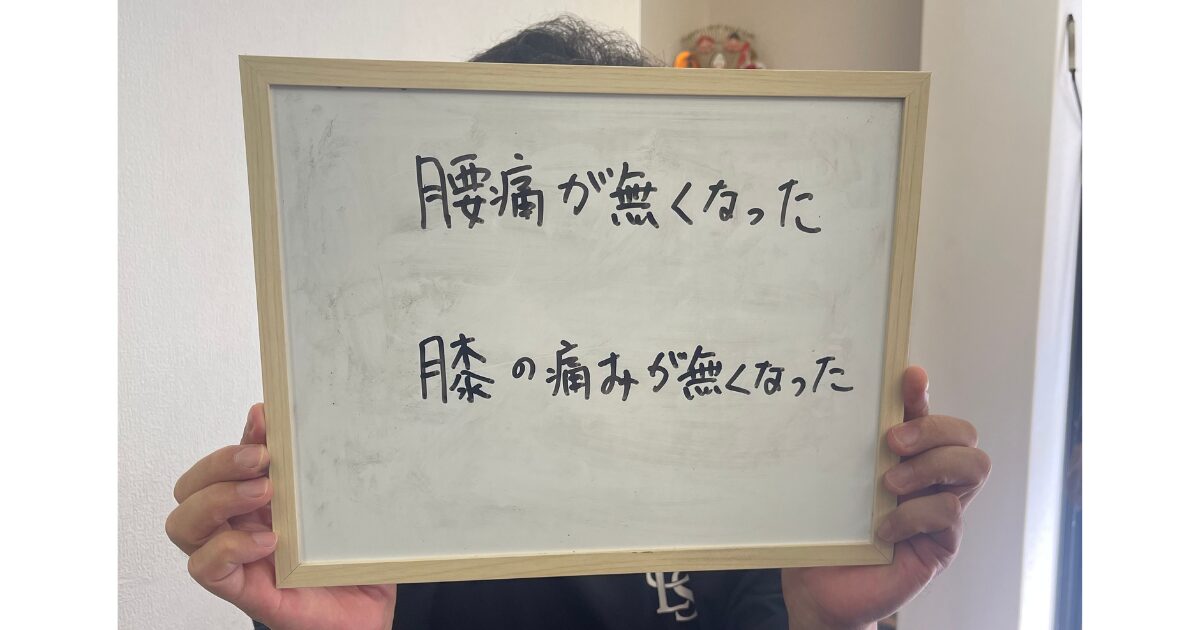 腰痛が無くなった
膝の痛みが無くなった